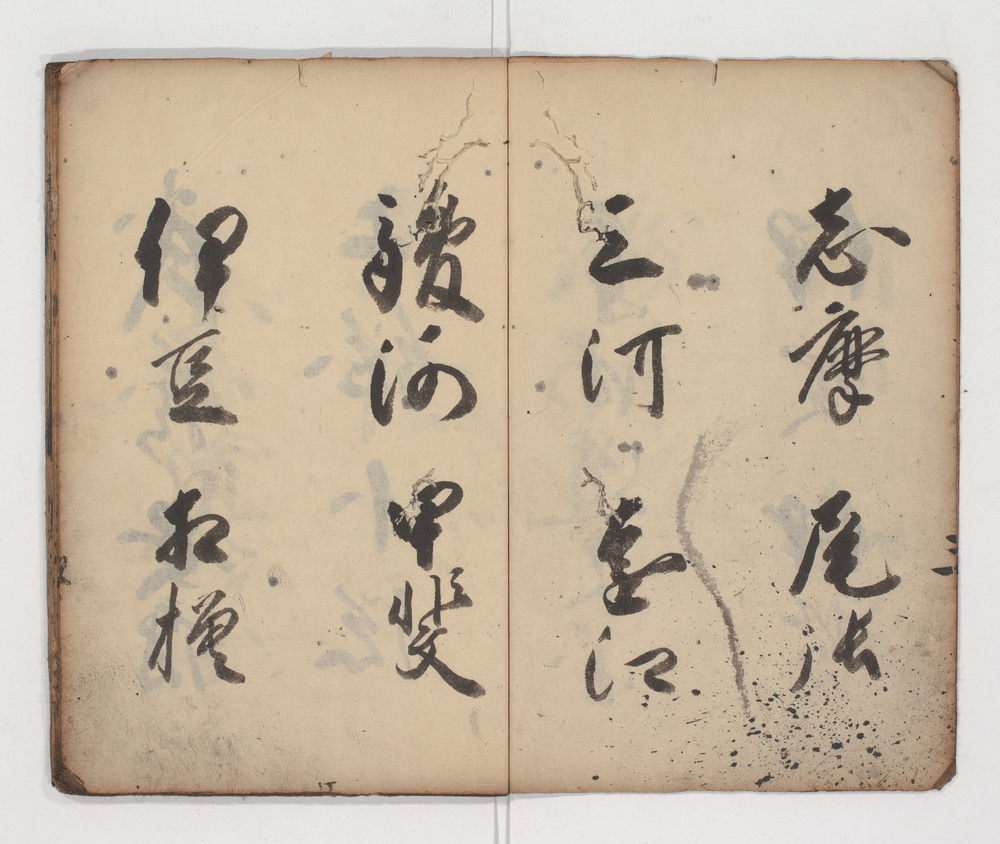 志摩 尾張
三河 遠江
駿河 甲斐
伊豆 相模